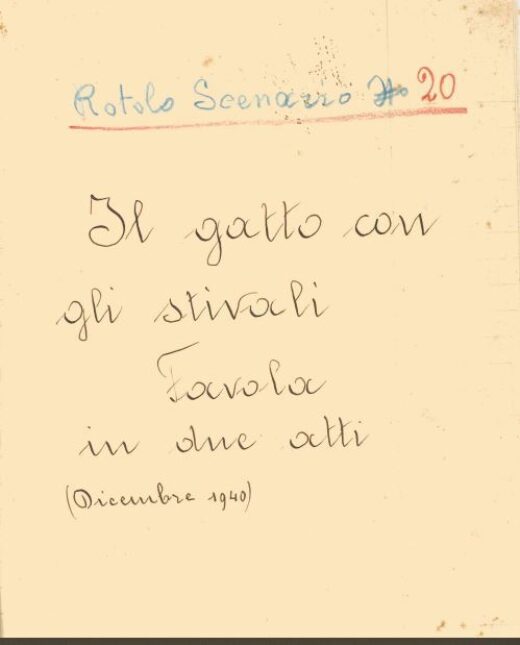 Rotolo Scenario No 20
Il gatto con
gli stivali
Favola
in due atti
(Dicembre 1940)